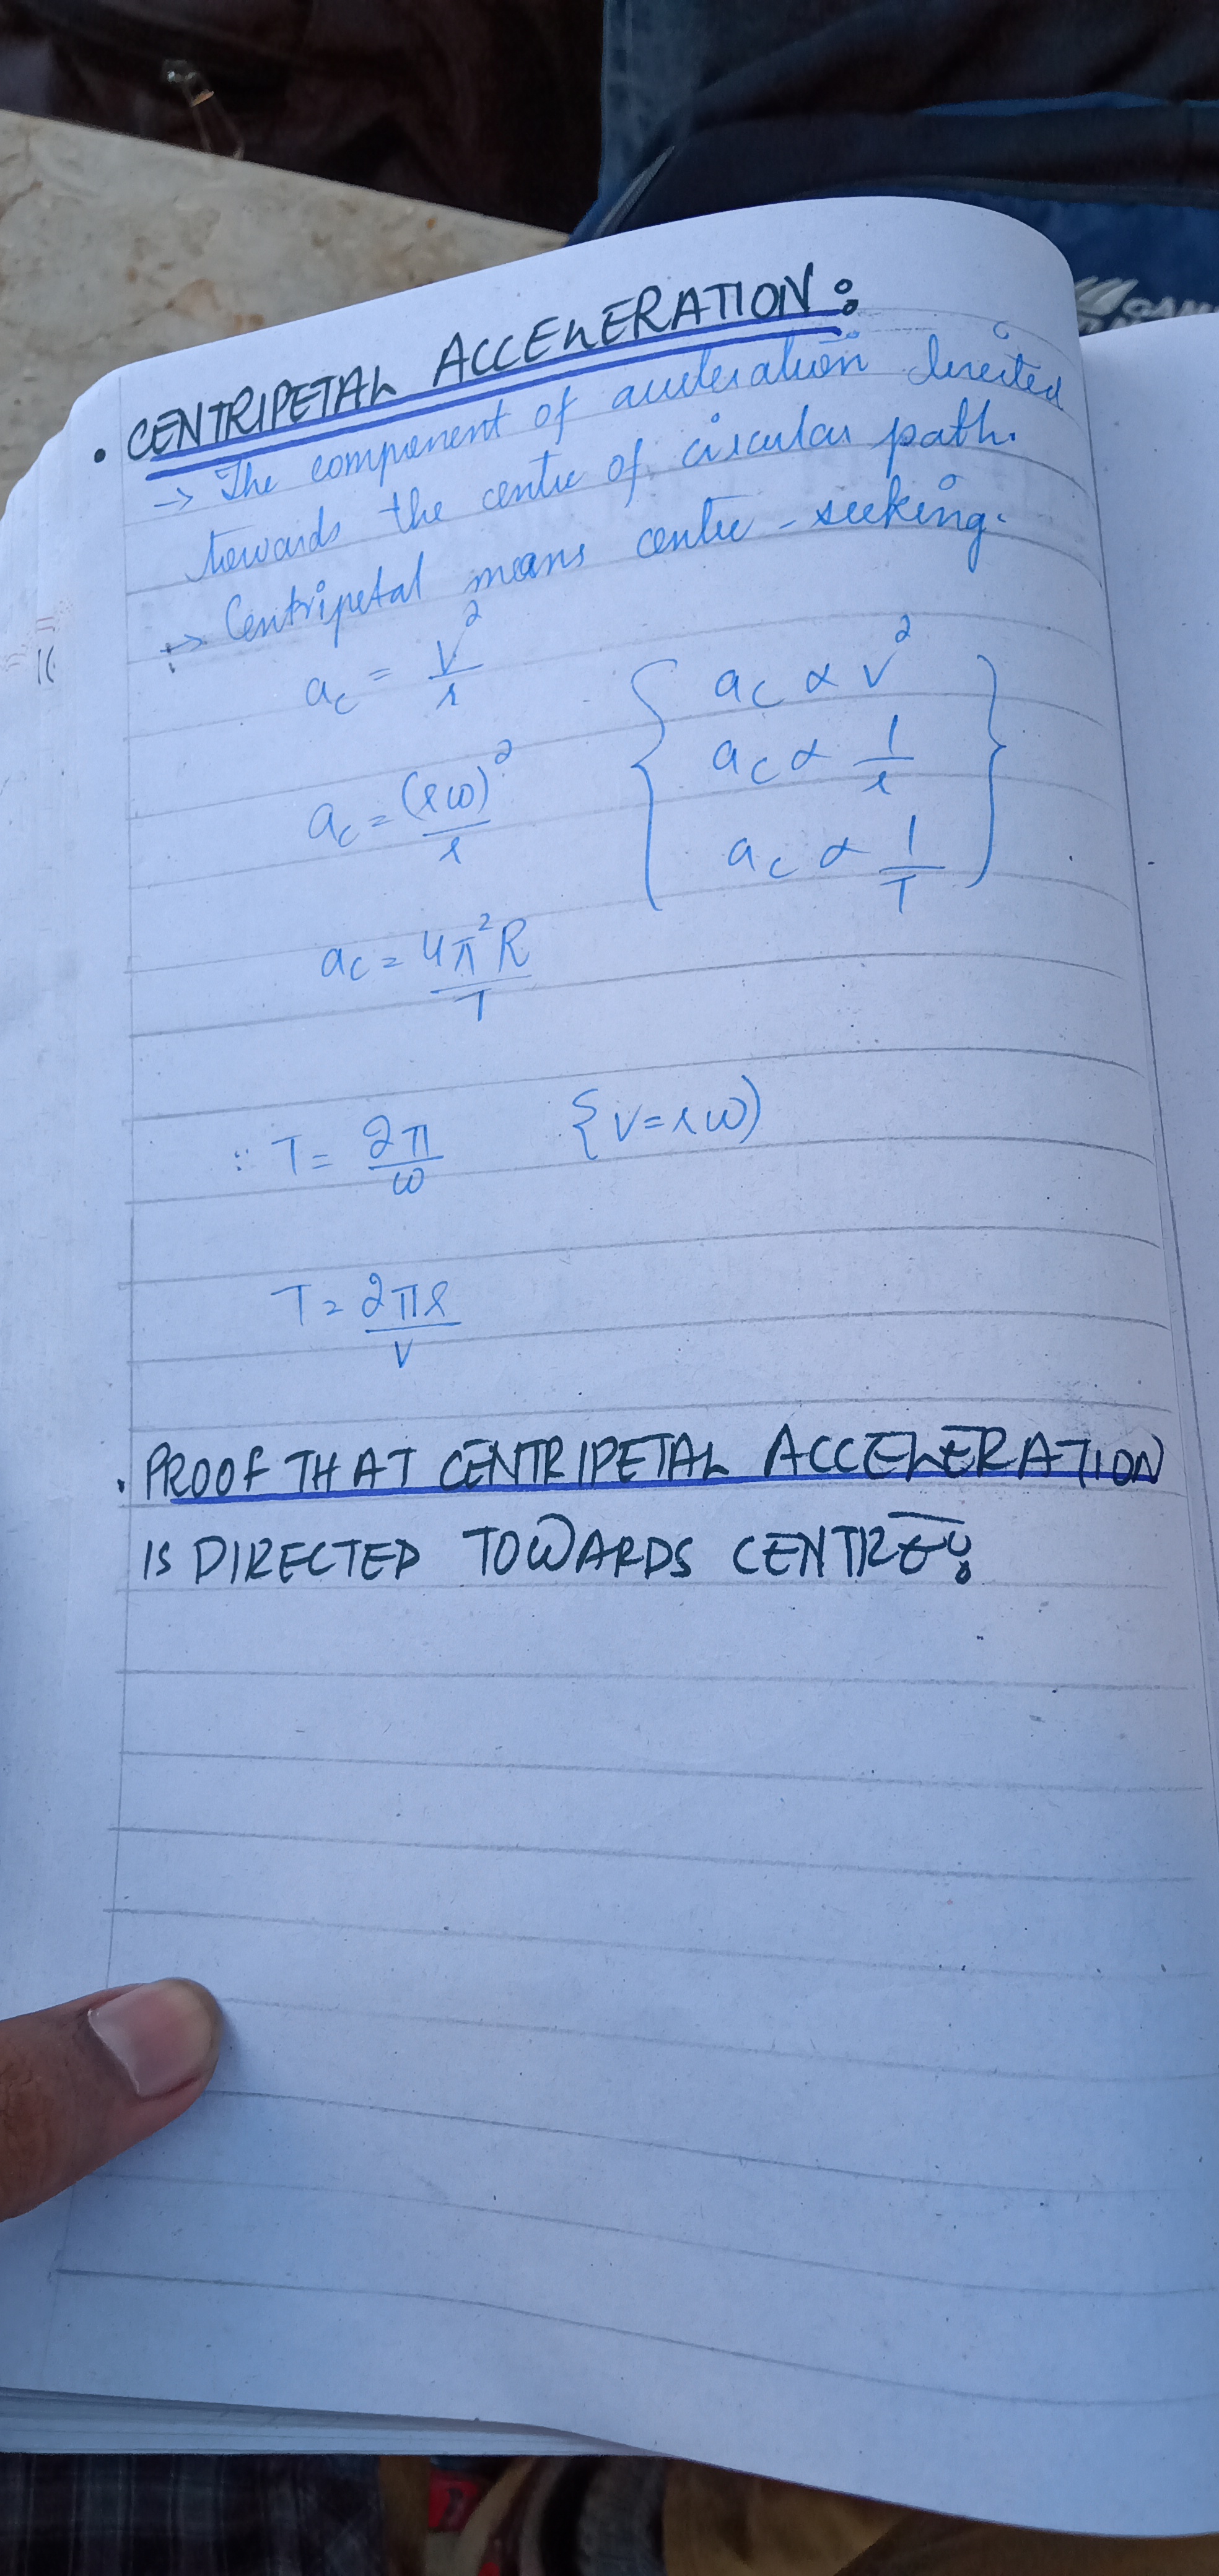 • CENTRIPETAL ACCELERATION:
→ The component of acceleration directed
towards the centre of circular path.
→ Centripetal means centre-seeking.
ac = v²/r { ac ∝ v²
ac = (rω)²/r ac ∝ 1/r
ac ∝ 1/T }
ac = 4π²R/T
∵ T = 2π/ω {v=rω)
T = 2πr/v
• PROOF THAT CENTRIPETAL ACCELERATION
IS DIRECTED TOWARDS CENTRE: